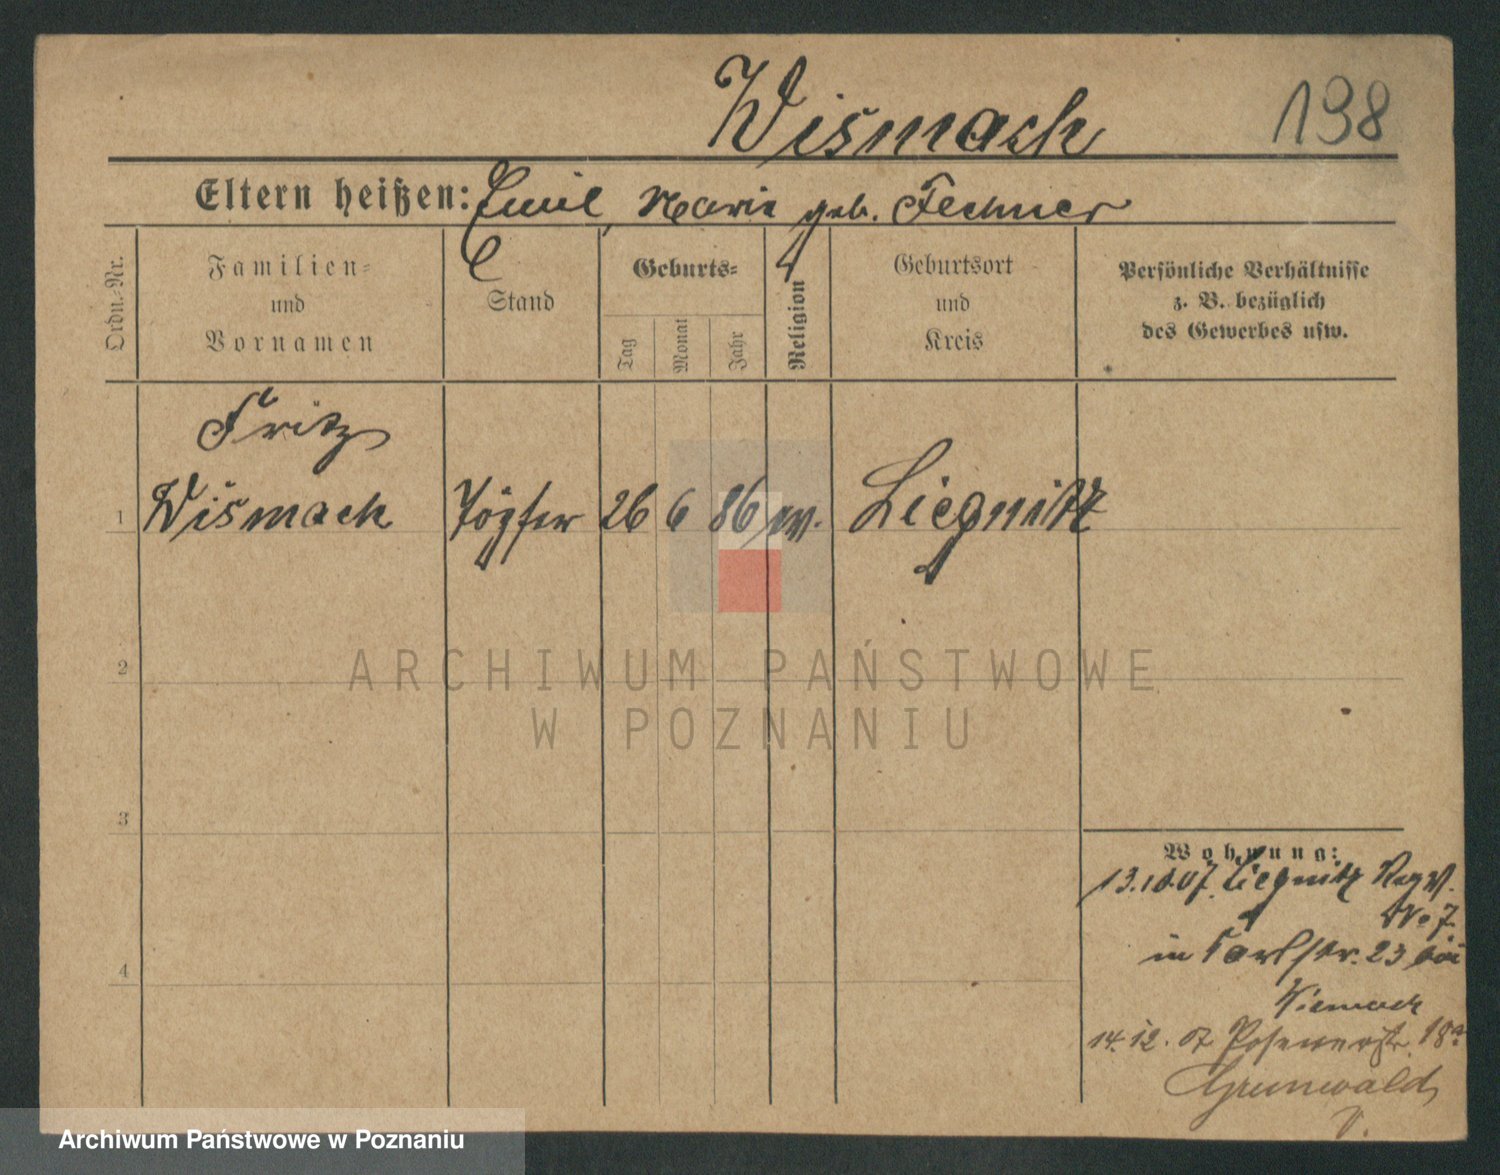 Wismach
198
Eltern heißen: Emil, Marie geb. Fechner
Ordn.-Nr.
Familien-
und
Vornamen
Stand
Geburts-
Tag
Monat
Jahr
Religion
Geburtsort
und
Kreis
Persönliche Verhältnisse
z. B. bezüglich
des Gewerbes usw.
Fritz
1 Wismach Töpfer 26 6 86 Liegnitz
2
3
4
Wohnung:
13.10.07 Liegnitz
No 7
in Karlstr. 23 bei
Wismach
14.12.07 Posenerstr. 18a
Grunwald
ARCHIWUM PAŃSTWOWE
W POZNANIU
Archiwum Państwowe w Poznaniu